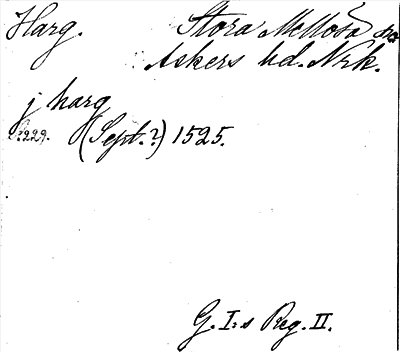 Harg. Stora Mellösa sn
Askers hd. Nrk.
j harg
s. 229. (Sept.?) 1525.
G. I:s Reg. II.